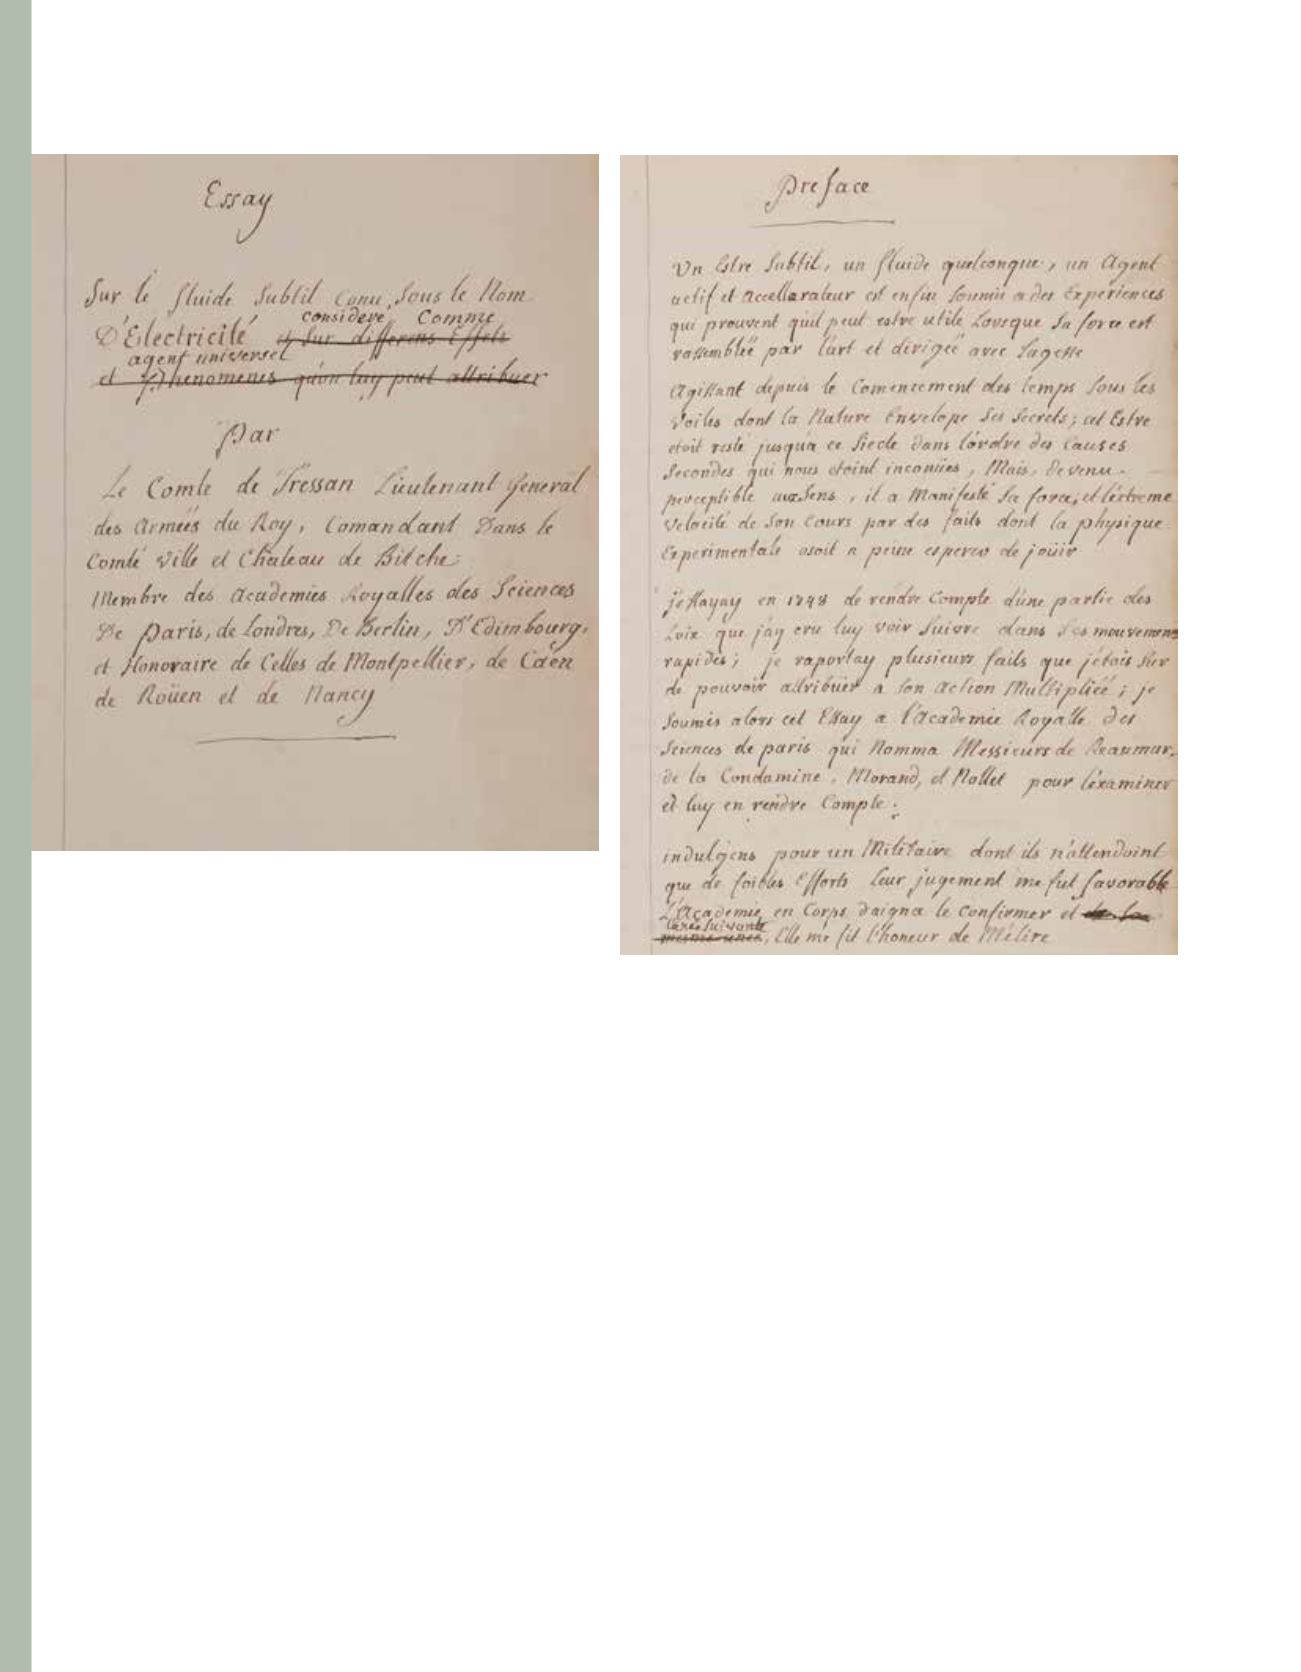 Essay
Sur le fluide Subtil Conu Sous le Nom
consideré Comme
D'Electricité et Sur differens Effets
agent universel
et Phenomenes qu'on luy peut attribuer
Par
Le Comte de Tressan Lieutenant General
des Armées du Roy, Comandant Dans le
Comté Ville et Chateau de Bitche
Membre des Academies Royalles des Sciences
De Paris, de Londres, De Berlin, D'Edimbourg,
et Honoraire de Celles de Montpellier, de Caën
de Roüen et de Nancy
Preface
Un Estre Subtil, un fluide quelconque, un Agent
actif et accellerateur est enfin Soumis a des Experiences
qui prouvent quil peut estre utile Lorsque Sa force est
rassemblée par l'art et dirigée avec Sagesse
Agissant depuis le Comencement des temps Sous les
Voiles dont la Nature Envelope Ses Secrets; cet Estre
etoit resté jusqu'a ce Siecle dans l'ordre des Causes
Secondes qui nous etoint inconües, Mais, devenu
perceptible aux Sens, il a Manifesté Sa force, et l'éxtreme
Velocité de Son Cours par des faits dont la physique
Experimentale osoit a peine esperer de joüir
jéssayay en 1748 de rendre Compte d'une partie des
Loix que j'ay cru luy voir Suivre dans Ses mouvemens
rapides; je raportay plusieurs faits que j'étois Sur
de pouvoir attribüer a Son Action Multipliée; je
Soumis alors cet Essay a l'Academie Royalle des
Sciences de paris qui Nomma Messieurs de Reaumur,
de la Condamine, Morand, et Nollet pour l'éxaminer
et luy en rendre Compte:
indulgens pour un Militaire dont ils n'attendoint
que de foibles Efforts Leur jugement me fut favorable
L'Academie en Corps daigna le Confirmer et des la
l'anée Suivante
mesme anée, Elle me fit l'honeur de M'élire